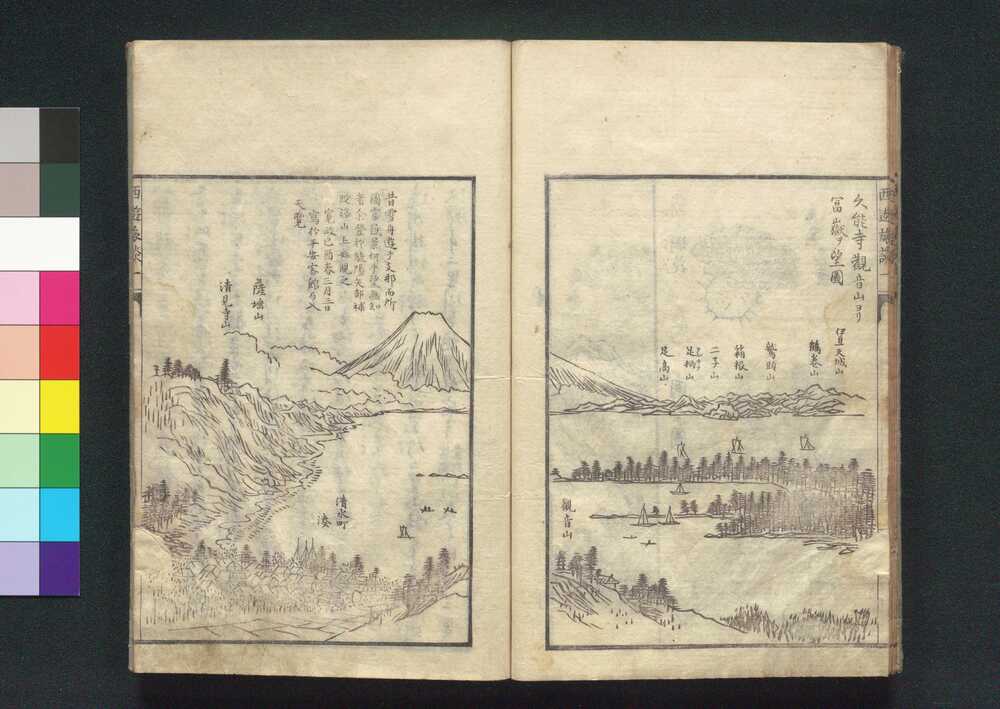 久能寺觀音山ヨリ
冨嶽ヲ望圖
伊豆天城山
鶴巻山
鷲頭山
箱根山
二子山
足柄山
足高山
觀音山
西遊旅譚一
昔雪舟遊于支那而所
圖富嶽景何乎
者
山上
寛政己酉春三月三日
寫於平安客館乃入
天覽
薩埵山
清見寺山
清水町
湊